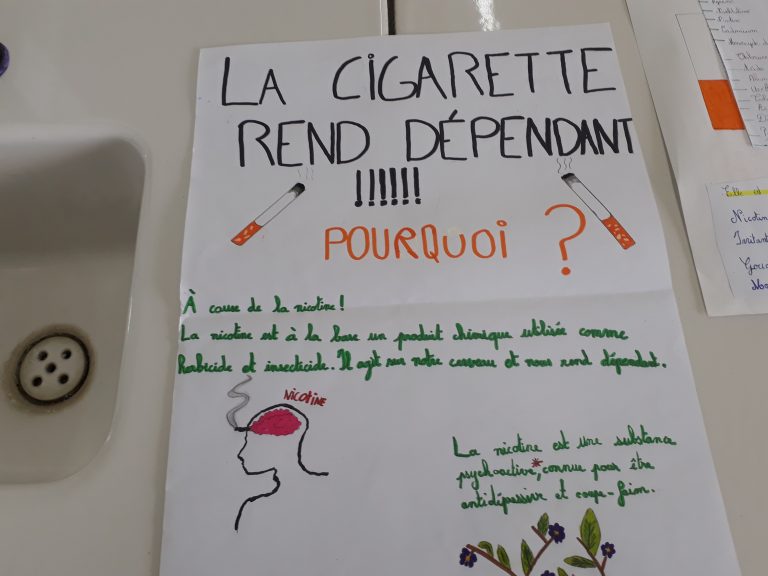 LA CIGARETTE
REND DÉPENDANT
!!!!!!
POURQUOI ?
À cause de la nicotine !
La nicotine est à la base un produit chimique utilisée comme
herbicide et insecticide. Il agit sur notre cerveau et nous rend dépendant.
NICOTINE
La nicotine est une substance
psychoactive*, connue pour être
antidépressive et coupe-faim.
Nicotin
Irritant